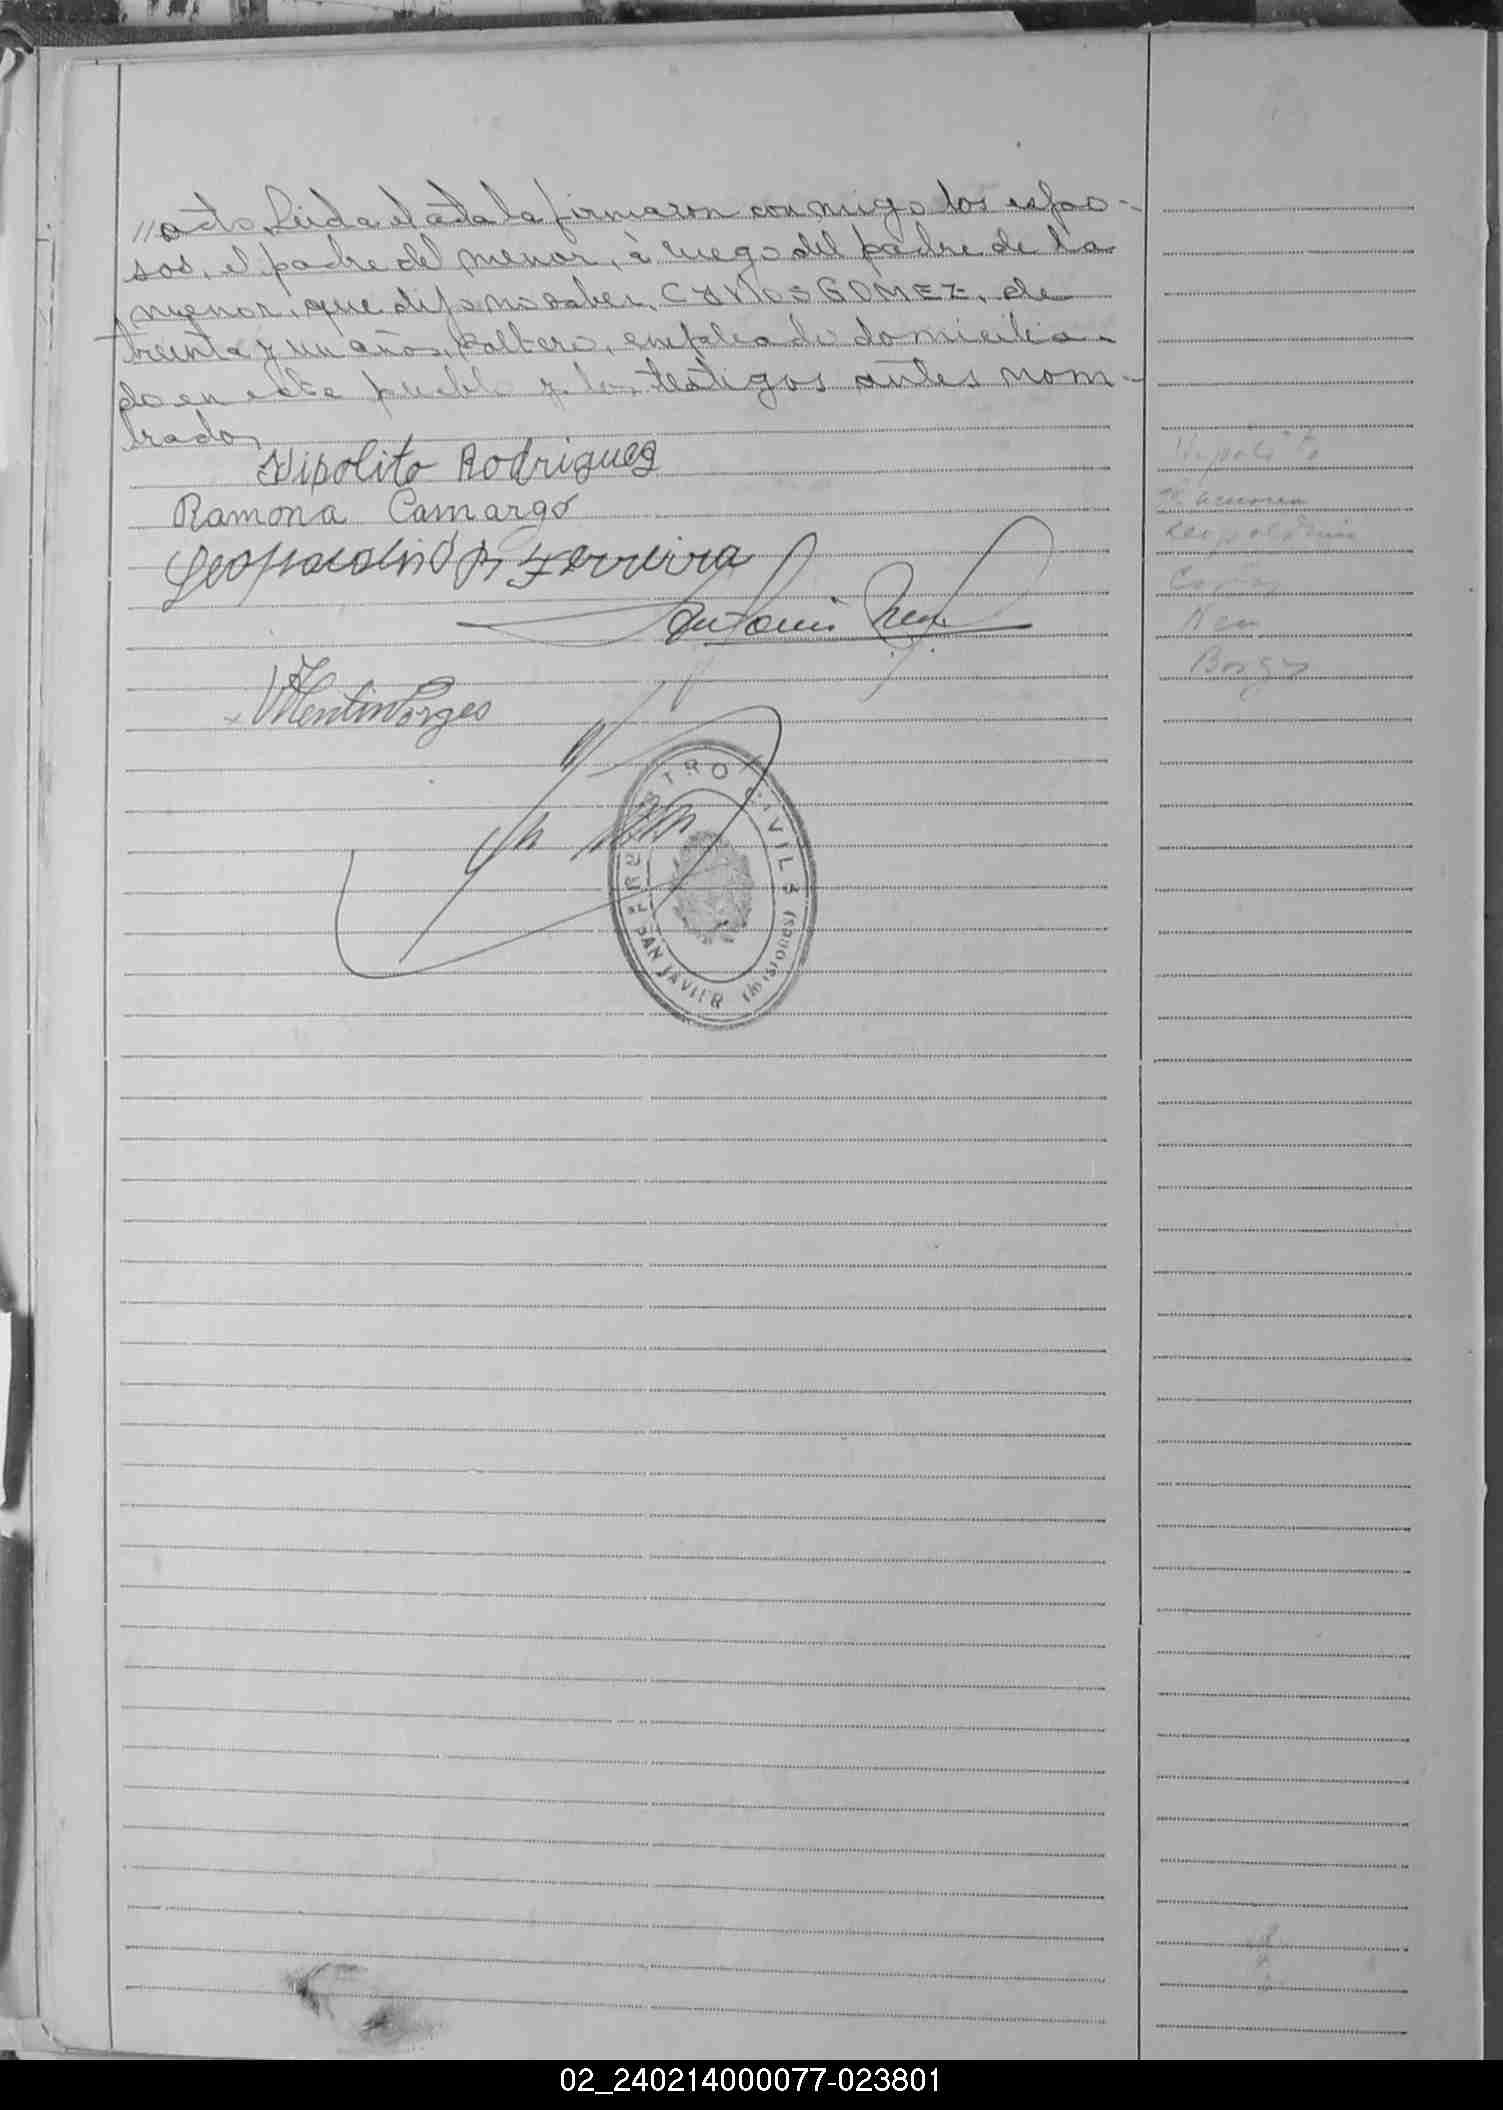 //acto. Leida el acta la firmaron conmigo los espo-
sos, el padre del menor, á ruego del padre de la
menor, que dijo no saber, CARLOS GOMEZ, de
treinta y un años, soltero, empleado domicilia-
do en este pueblo y los testigos antes nom-
brados
Hipolito Rodriguez
Ramona Camargo
Leopoldino Ferreira
Antonio
Valentin Borges
REGISTRO CIVIL
SAN JAVIER (Misiones)
Hipolito
Ramona
Leopoldino
Carlos
Borges
02_240214000077-023801